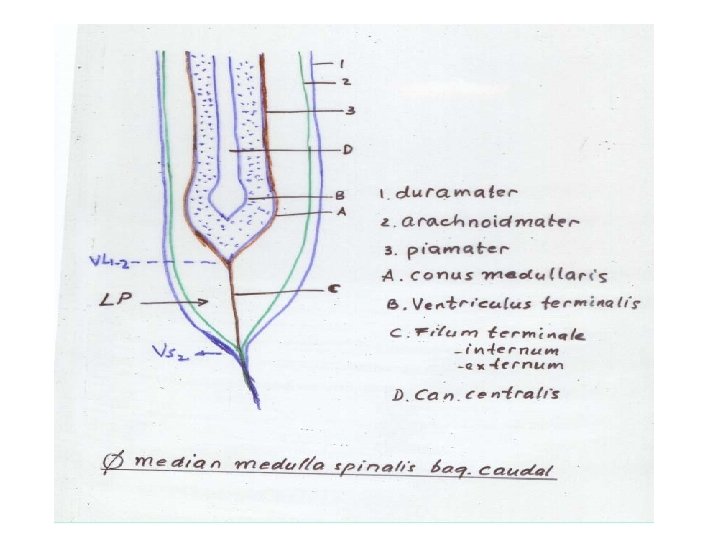 1
2
3
D
B
A
VL1-2
C
LP
VS2
1. duramater
2. arachnoidmater
3. piamater
A. conus medullaris
B. Ventriculus terminalis
C. Filum terminale
- internum
- externum
D. Can. centralis
Ø median medulla spinalis bag. caudal